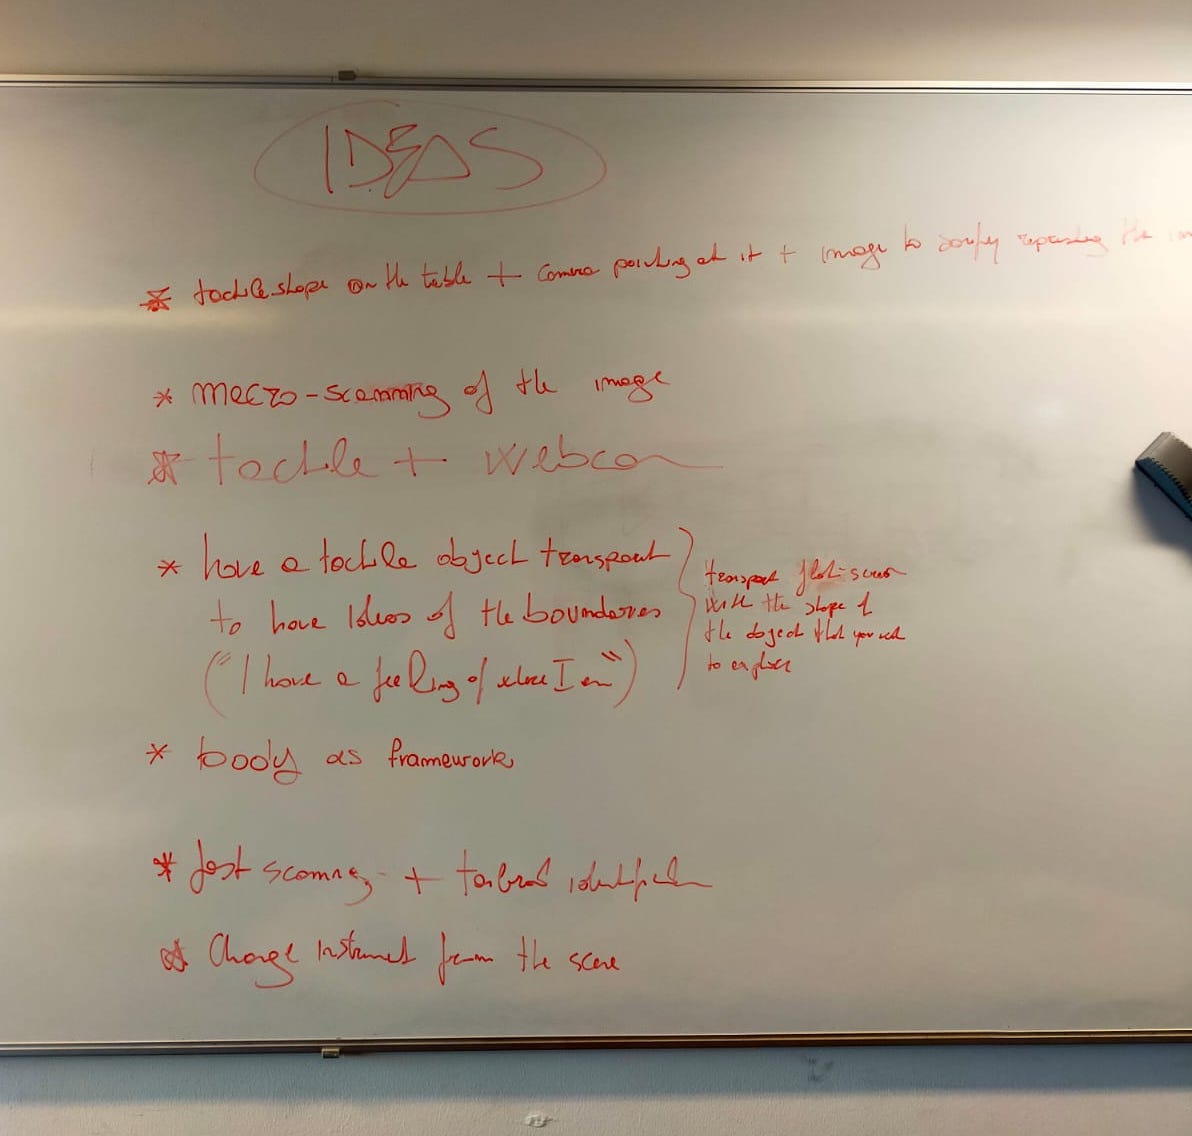 IDEAS
* tactile shape on the table + camera pointing at it + image to sonify representing the
* macro-scanning of the image
* tactile + webcam
* have a tactile object transparent
to have ideas of the boundaries
("I have a feeling of where I am")
transparent flat-screen
with the shape of
the object that you need
to explore
* body as framework
* fast scanning + timbral identification
* Change instrument from the scene